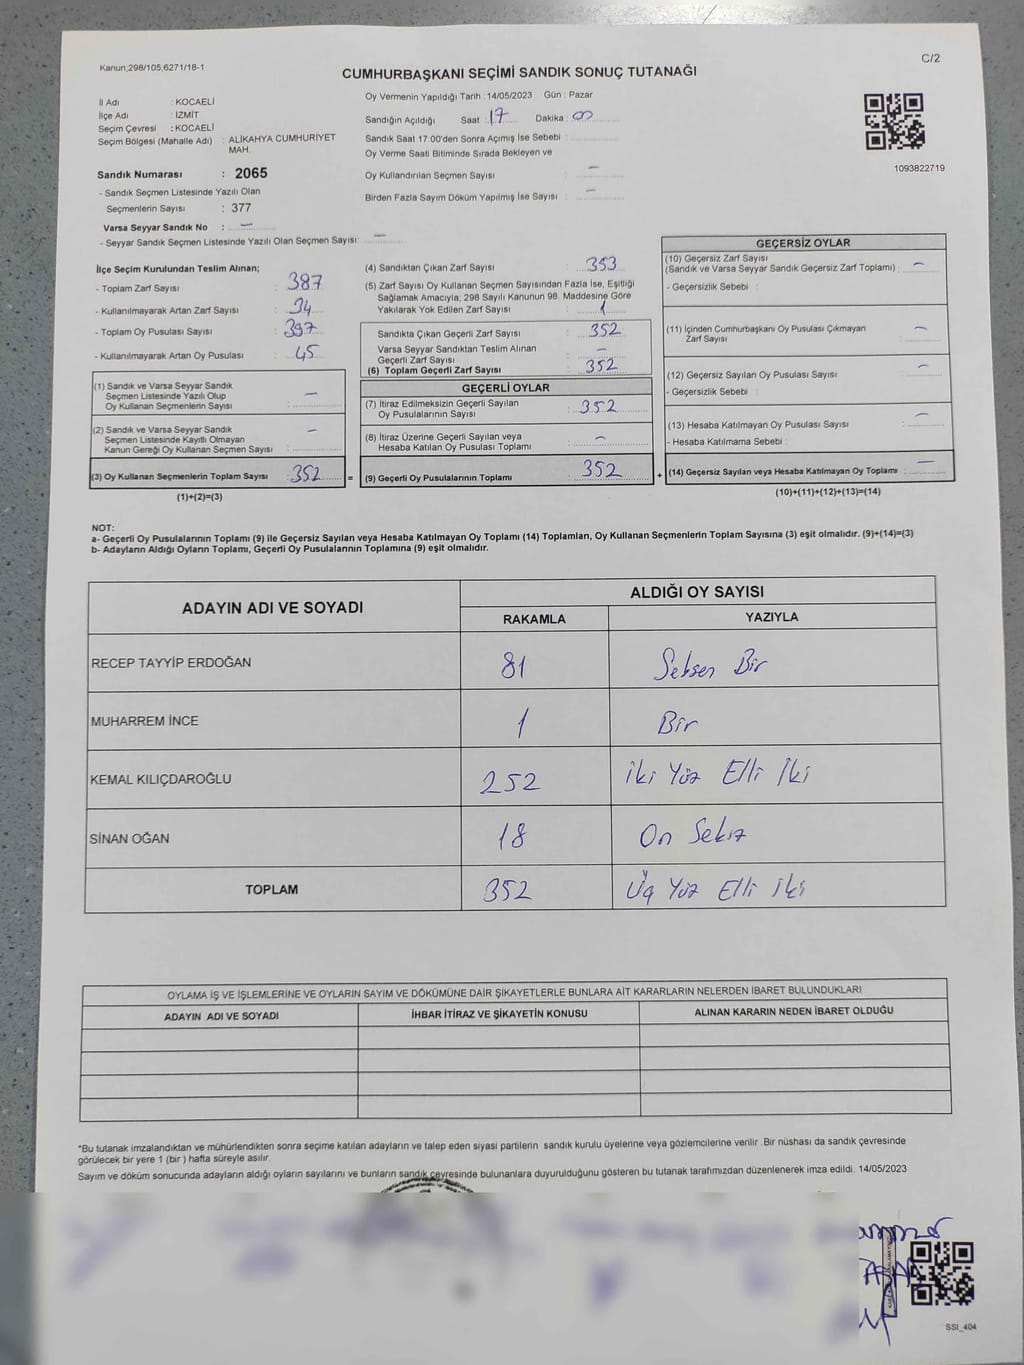 Kanun,298/105,6271/18-1
C/2
CUMHURBAŞKANI SEÇİMİ SANDIK SONUÇ TUTANAĞI
İl Adı : KOCAELİ
İlçe Adı : İZMİT
Seçim Çevresi : KOCAELİ
Seçim Bölgesi (Mahalle Adı) : ALİKAHYA CUMHURİYET
MAH.
Sandık Numarası : 2065
- Sandık Seçmen Listesinde Yazılı Olan
Seçmenlerin Sayısı : 377
Varsa Seyyar Sandık No : —
- Seyyar Sandık Seçmen Listesinde Yazılı Olan Seçmen Sayısı: —
Oy Vermenin Yapıldığı Tarih : 14/05/2023 Gün : Pazar
Sandığın Açıldığı Saat : 17 Dakika : 00
Sandık Saat 17:00'den Sonra Açımış İse Sebebi :
Oy Verme Saati Bitiminde Sırada Bekleyen ve
Oy Kullandırılan Seçmen Sayısı : —
Birden Fazla Sayım Döküm Yapılmış İse Sayısı : —
1093822719
İlçe Seçim Kurulundan Teslim Alınan;
- Toplam Zarf Sayısı : 387
- Kullanılmayarak Artan Zarf Sayısı : 34
- Toplam Oy Pusulası Sayısı : 397
- Kullanılmayarak Artan Oy Pusulası : 45
(1) Sandık ve Varsa Seyyar Sandık
Seçmen Listesinde Yazılı Olup
Oy Kullanan Seçmenlerin Sayısı : —
(2) Sandık ve Varsa Seyyar Sandık
Seçmen Listesinde Kayıtlı Olmayan
Kanun Gereği Oy Kullanan Seçmen Sayısı : —
(3) Oy Kullanan Seçmenlerin Toplam Sayısı : 352 =
(1)+(2)=(3)
(4) Sandıktan Çıkan Zarf Sayısı : 353
(5) Zarf Sayısı Oy Kullanan Seçmen Sayısından Fazla İse, Eşitliği
Sağlamak Amacıyla; 298 Sayılı Kanunun 98. Maddesine Göre
Yakılarak Yok Edilen Zarf Sayısı : 1
Sandıkta Çıkan Geçerli Zarf Sayısı : 352
Varsa Seyyar Sandıktan Teslim Alınan
Geçerli Zarf Sayısı : —
(6) Toplam Geçerli Zarf Sayısı : 352
GEÇERLİ OYLAR
(7) İtiraz Edilmeksizin Geçerli Sayılan
Oy Pusulalarının Sayısı : 352
(8) İtiraz Üzerine Geçerli Sayılan veya
Hesaba Katılan Oy Pusulası Toplamı : —
(9) Geçerli Oy Pusulalarının Toplamı : 352 +
GEÇERSİZ OYLAR
(10) Geçersiz Zarf Sayısı
(Sandık ve Varsa Seyyar Sandık Geçersiz Zarf Toplamı) : —
- Geçersizlik Sebebi :
(11) İçinden Cumhurbaşkanı Oy Pusulası Çıkmayan
Zarf Sayısı : —
(12) Geçersiz Sayılan Oy Pusulası Sayısı : —
- Geçersizlik Sebebi :
(13) Hesaba Katılmayan Oy Pusulası : —
- Hesaba Katılmama Sebebi :
(14) Geçersiz Sayılan veya Hesaba Katılmayan Oy Toplamı : —
(10)+(11)+(12)+(13)=(14)
NOT:
a- Geçerli Oy Pusulalarının Toplamı (9) ile Geçersiz Sayılan veya Hesaba Katılmayan Oy Toplamı (14) Toplamları, Oy Kullanan Seçmenlerin Toplam Sayısına (3) eşit olmalıdır. (9)+(14)=(3)
b- Adayların Aldığı Oyların Toplamı, Geçerli Oy Pusulalarının Toplamına (9) eşit olmalıdır.
ADAYIN ADI VE SOYADI
ALDIĞI OY SAYISI
RAKAMLA YAZIYLA
RECEP TAYYİP ERDOĞAN 81 Seksen Bir
MUHARREM İNCE 1 Bir
KEMAL KILIÇDAROĞLU 252 İki Yüz Elli İki
SİNAN OĞAN 18 On Sekiz
TOPLAM 352 Üç Yüz Elli İki
OYLAMA İŞ VE İŞLEMLERİNE VE OYLARIN SAYIM VE DÖKÜMÜNE DAİR ŞİKAYETLERLE BUNLARA AİT KARARLARIN NELERDEN İBARET BULUNDUKLARI
ADAYIN ADI VE SOYADI İHBAR İTİRAZ VE ŞİKAYETİN KONUSU ALINAN KARARIN NEDEN İBARET OLDUĞU
*Bu tutanak imzalandıktan ve mühürlendikten sonra seçime katılan adayların ve talep eden siyasi partilerin sandık kurulu üyelerine veya gözlemcilerine verilir .Bir nüshası da sandık çevresinde
görülecek bir yere 1 (bir ) hafta süreyle asılır.
Sayım ve döküm sonucunda adayların aldığı oyların sayılarını ve bunların sandık çevresinde bulunanlara duyurulduğunu gösteren bu tutanak tarafımızdan düzenlenerek imza edildi. 14/05/2023
SSI_404